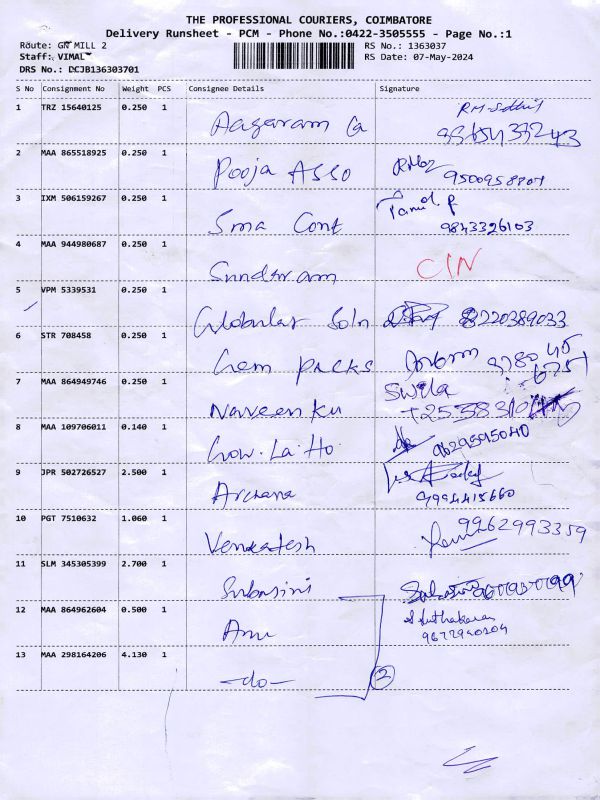 THE PROFESSIONAL COURIERS, COIMBATORE
Delivery Runsheet - PCM - Phone No.:0422-3505555 - Page No.:1
Route: GN MILL 2 RS No.: 1363037
Staff: VIMAL RS Date: 07-May-2024
DRS No.: DCJB136303701
S No Consignment No Weight PCS Consignee Details Signature
1 TRZ 15640125 0.250 1 Aagaram Ca
2 MAA 865518925 0.250 1 Pooja Asso
3 IXM 506159267 0.250 1 Sma Cont Tamil P
9843326103
4 MAA 944980687 0.250 1 CIN
5 VPM 5339531 0.250 1 Globular Soln 8220389033
6 STR 708458 0.250 1 Gem Packs
7 MAA 864949746 0.250 1 Naveen Ku
8 MAA 109706011 0.140 1 Gow. La. Ho 9629595040
9 JPR 502726527 2.500 1 Archana
9994415660
10 PGT 7510632 1.060 1 Venkatesh 9962993359
11 SLM 345305399 2.700 1 Subasini
12 MAA 864962604 0.500 1 Anu
13 MAA 298164206 4.130 1 -do- 2